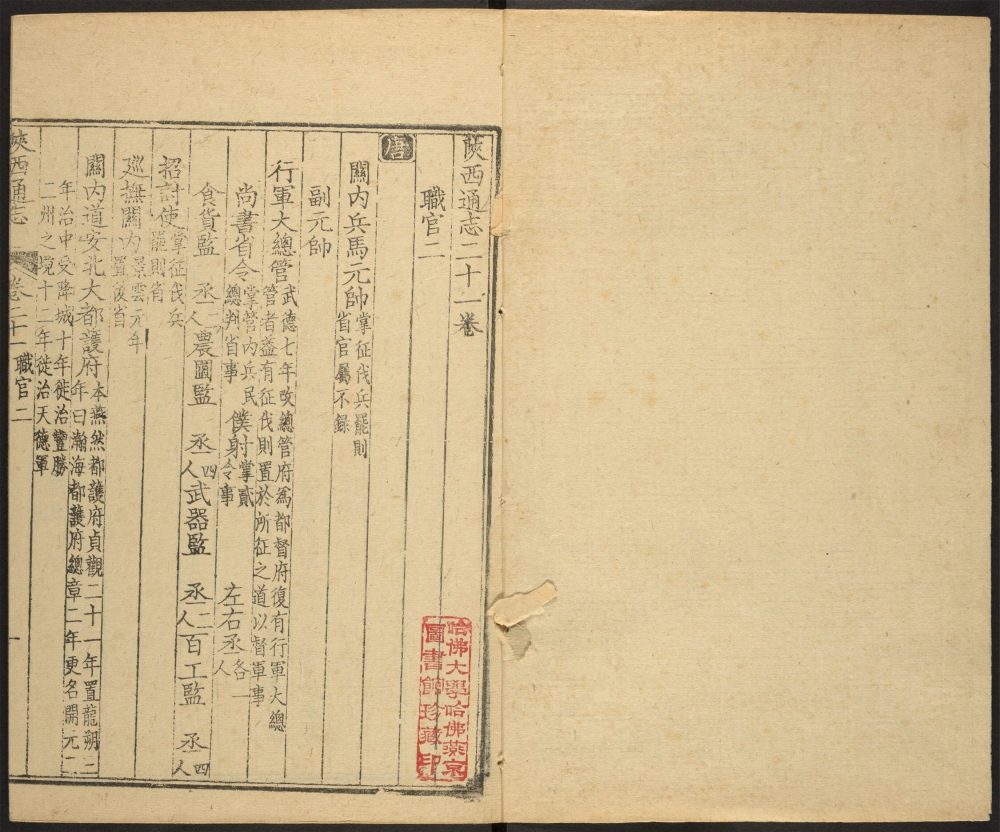 陝西通志二十一卷
職官二
唐
關内兵馬元帥掌征伐兵罷則
省官屬不錄
副元帥
行軍大總管武德七年改總管府爲都督府復有行軍大總
管者葢有征伐則置於所征之道以督軍事
尚書省令掌管内兵民
總判省事 僕射掌貳
令事 左右丞各一
人
食貨監 丞二
人 農圃監 丞四
人 武器監 丞二
人 百工監 丞四
人
招討使掌征伐兵
罷則省
廵撫關内景雲元年
置後省
關内道安北大都護府本燕然都護府貞觀二十一年置龍朔二
年曰瀚海都護府總章二年更名開元二
年治中受降城十年徙治豐勝
二州之境十二年徙治天德軍
陝西通志 卷二十一 職官二 一
哈佛大學哈佛燕京
圖書館珍藏印